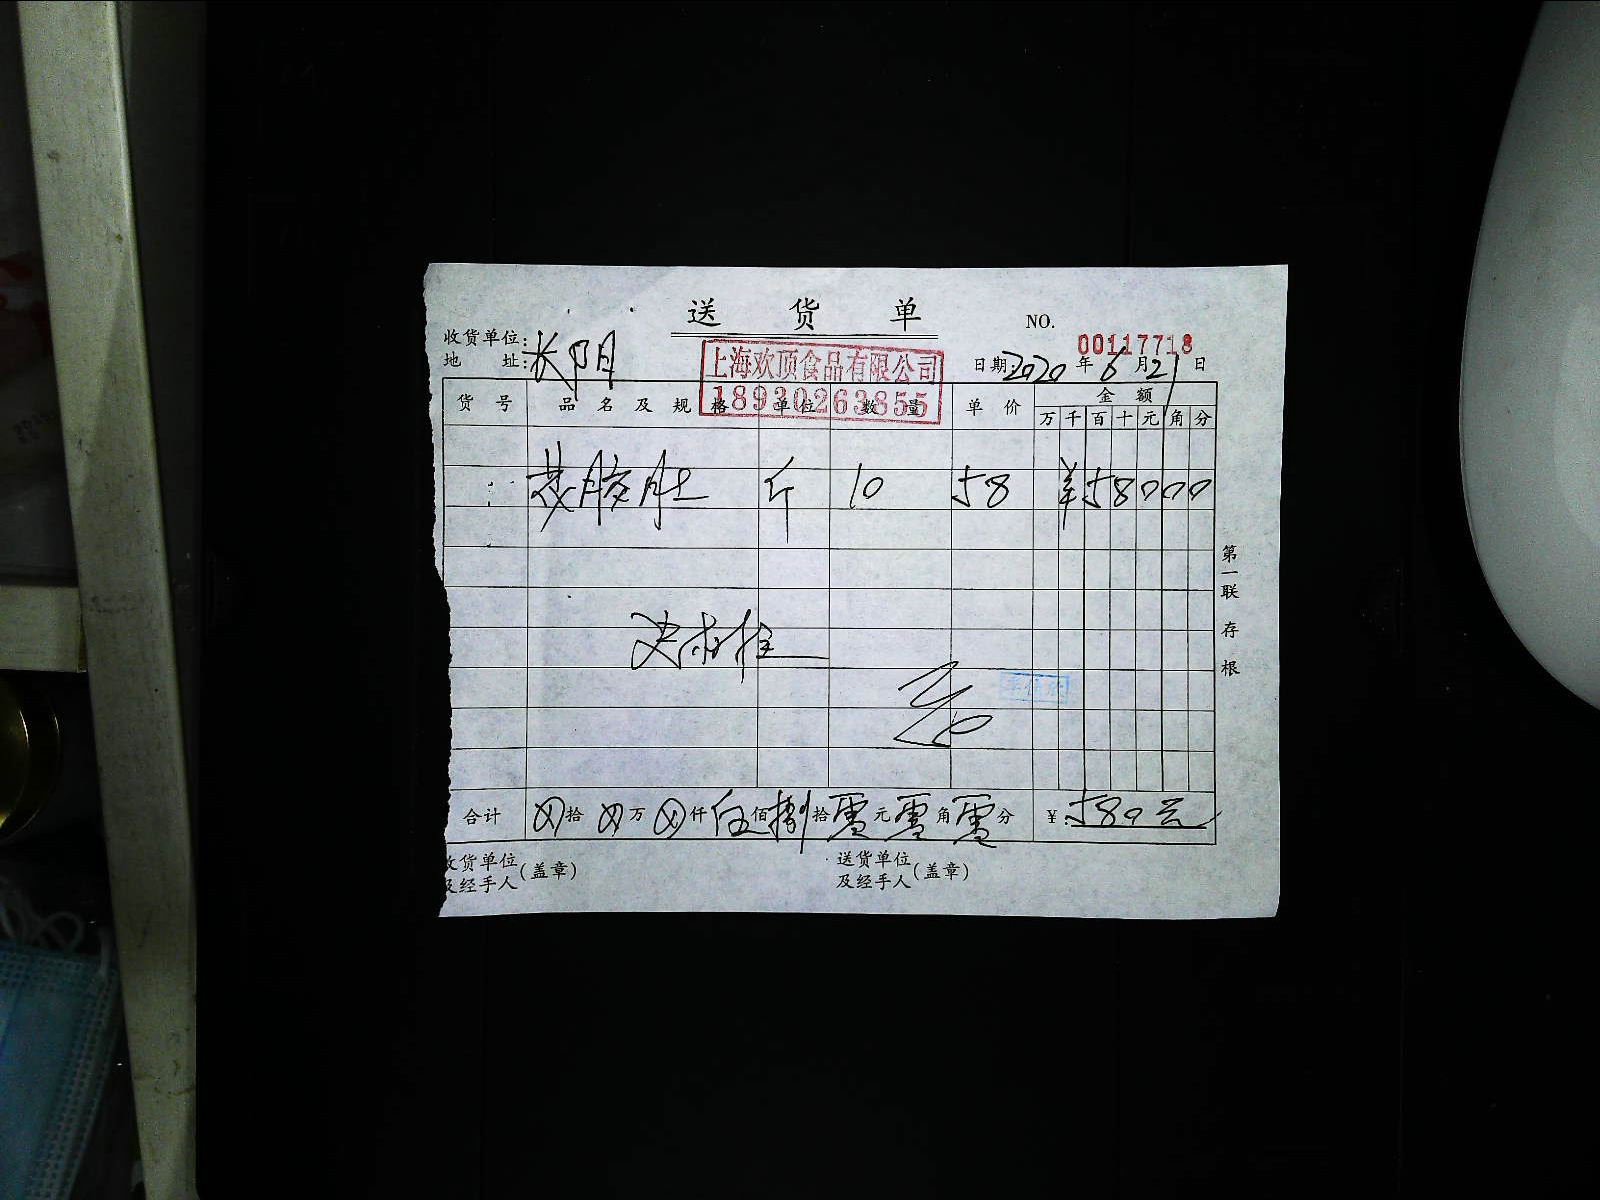 送货单
NO. 00117718
收货单位:
地址:
上海欢顶食品有限公司
18930263855
日期 2020年6月21日
货号 品名及规格 单位 数量 单价 金额
万 千 百 十 元 角 分
斤 10 58 ¥58000
第一联 存根
合计 拾 万 仟 伍佰捌拾零元零角零分 ¥:580元
收货单位及经手人(盖章)
送货单位及经手人(盖章)